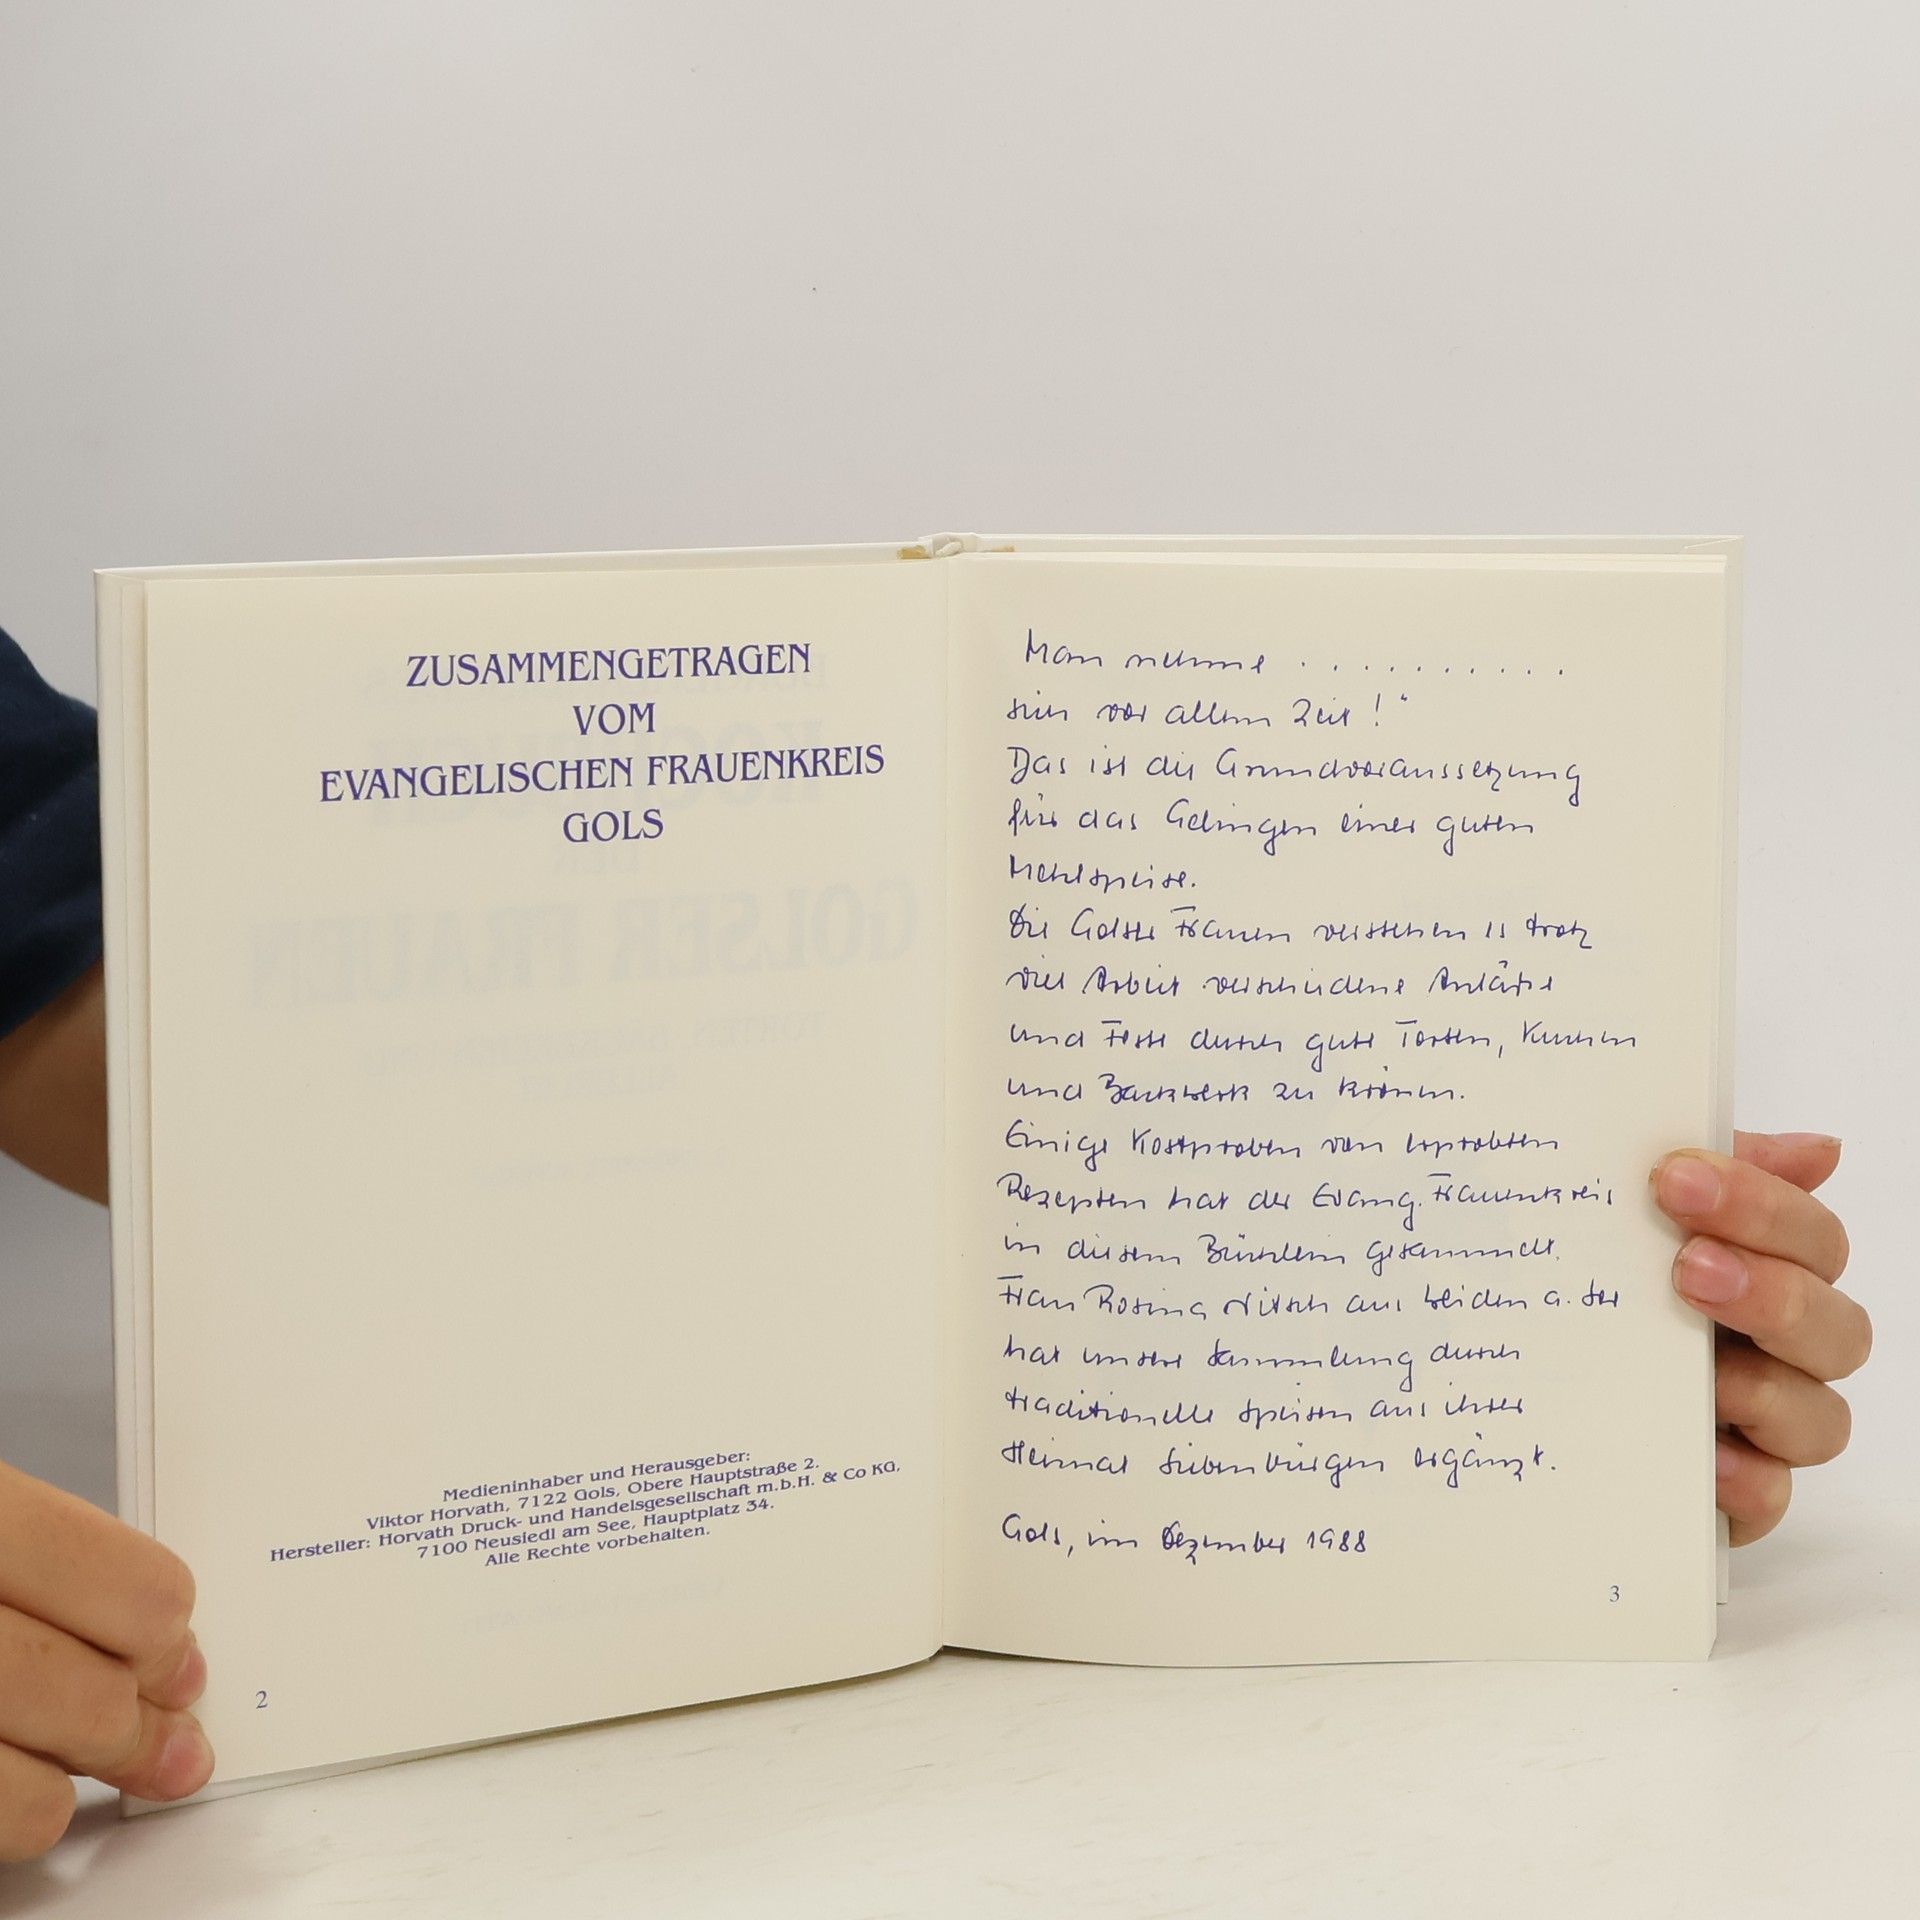 ZUSAMMENGETRAGEN
VOM
EVANGELISCHEN FRAUENKREIS
GOLS
Medieninhaber und Herausgeber:
Viktor Horvath, 7122 Gols, Obere Hauptstraße 2.
Hersteller: Horvath Druck- und Handelsgesellschaft m.b.H. & Co KG,
7100 Neusiedl am See, Hauptplatz 34.
Alle Rechte vorbehalten.
2
Man nehme . . . . . . . . . .
sich vor allem Zeit!“
Das ist die Grundvoraussetzung
für das Gelingen einer guten
Mehlspeise.
Die Golser Frauen verstehen es trotz
viel Arbeit verschiedene Anläße
und Feste durch gute Torten, Kuchen
und Backwerk zu krönen.
Einige Kostproben von erprobten
Rezepten hat der Evang. Frauenkreis
in diesem Büchlein gesammelt.
Frau Rosina Nitsch aus Weiden a. See
hat unsere Sammlung durch
traditionelle Speisen aus ihrer
Heimat Siebenbürgen ergänzt.
Gols, im Dezember 1988
3